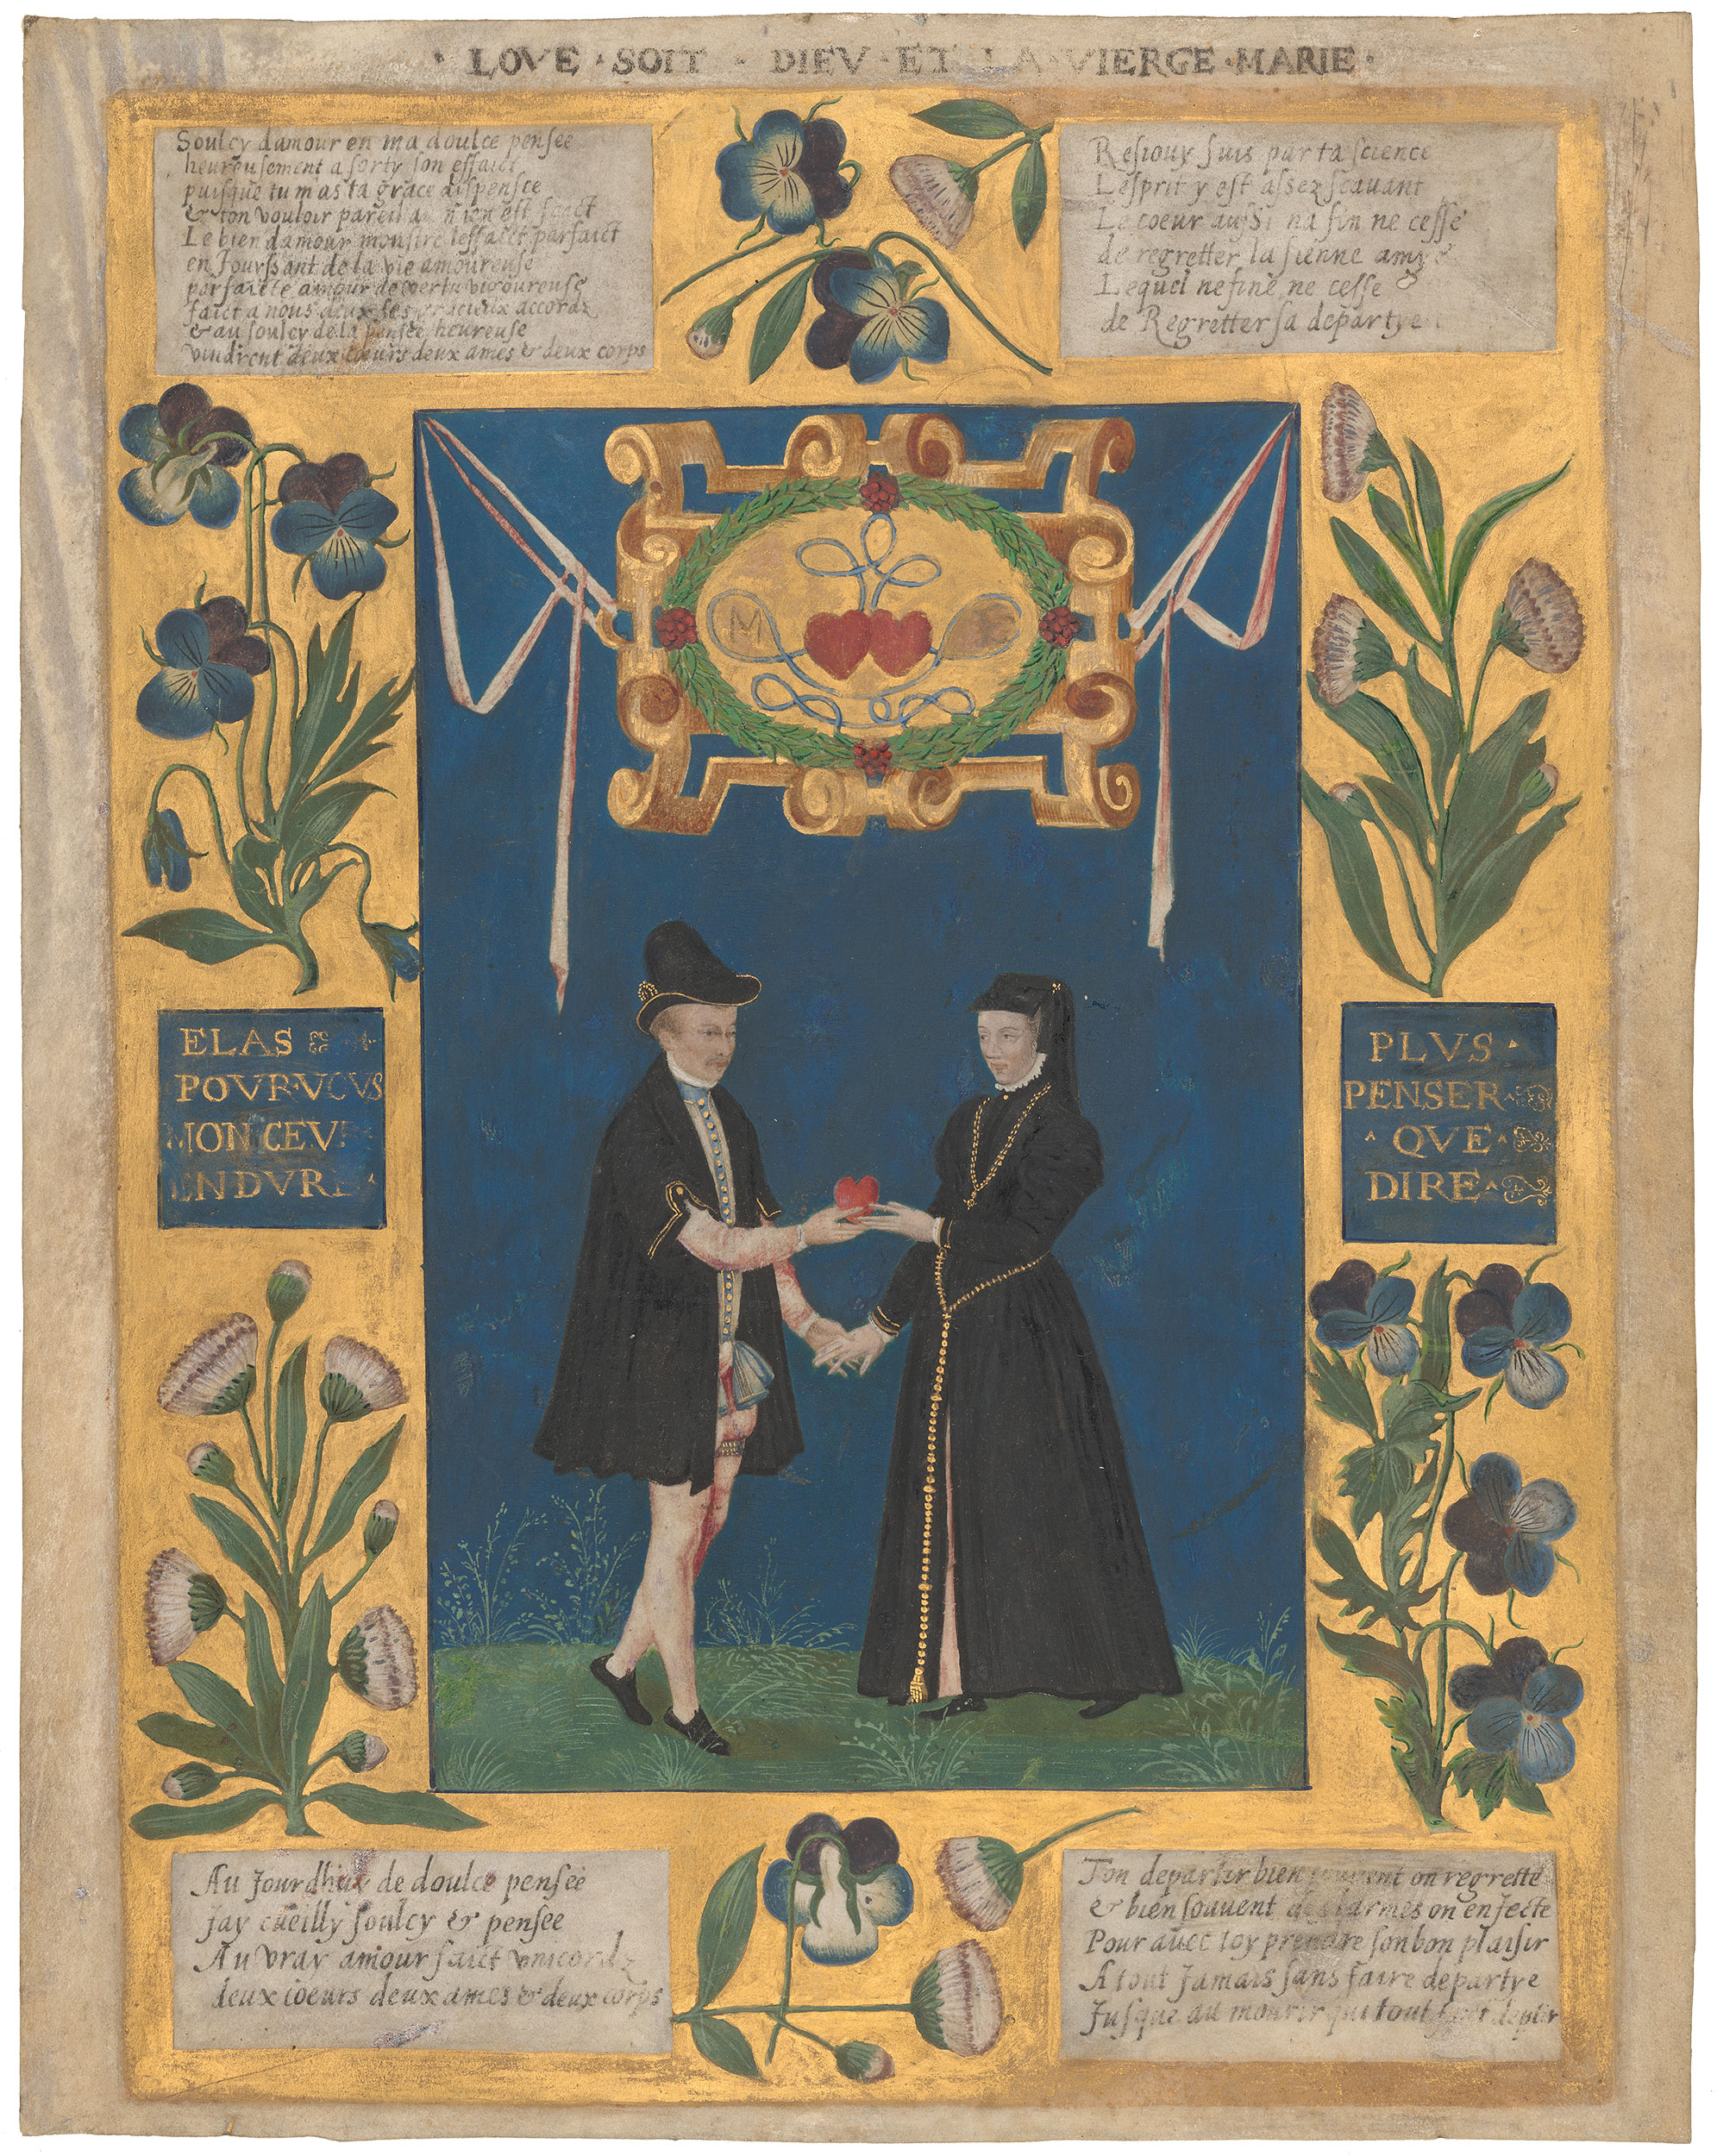 · LOVE · SOIT · DIEV · ET · LA · VIERGE · MARIE ·
Soulcy damour en ma doulce pensee
heureusement a sorty son effaict
puisque tu m as ta grace dispensee
& ton vouloir pareil au mien est faict
Le bien damour monstre leffaict parfaict
en Jouyssant de la vie amoureuse
parfaicte amour de vertu vigoureuse
faict a nous deux ses gracieux accordz
& au soulcy de la pensee heureuse
vindrent deux coeurs deux ames & deux corps
Resiouy suis par ta science
Lesprit y est assez scauant
Le coeur aussi na fin ne cesse
de regretter la sienne amye
Lequel ne fine ne cesse
de Regretter sa departye
M
E
ELAS
POVR·VCVS
MON CEV
ENDVRE
PLVS
PENSER
QVE
DIRE
Au Jourdhuy de doulce pensee
Jay cueilly soulcy & pensee
Au vray amour faict vnicordz
deux coeurs deux ames & deux corps
Ton departir bien souuent on regrette
& bien souuent des larmes on en Jecte
Pour auec toy prendre son bon plaisir
A tout Jamais sans faire departye
Jusque au mourir qui tout faict